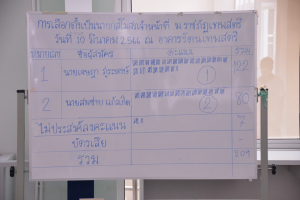 การเลือกตั้งเป็นนายกสโมสรเจ้าหน้าที่ ม.ราชภัฏเทพสตรี
วันที่ 10 มีนาคม 2566 ณ อาคารรัตนเทพสตรี
หมายเลข ชื่อผู้สมัคร คะแนน รวม
1 นายเจษฎา 1 122
2 นายสมชาย แก้วเกิด 2 80
ไม่ประสงค์ลงคะแนน 7
บัตรเสีย -
รวม 209